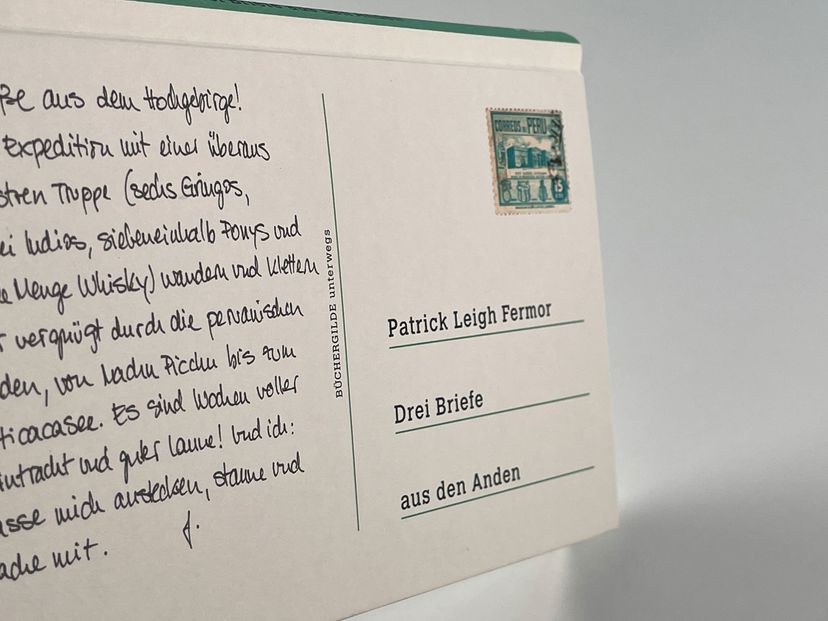 ße aus dem Hochgebirge!
Expedition mit einer überaus
stren Truppe (sechs Gringos,
ei Indios, siebeneinhalb Ponys und
e Menge Whisky) wandern und klettern
r vergnügt durch die peruanischen
den, von Machu Picchu bis zum
ticacasee. Es sind Wochen voller
intracht und guter Laune! Und ich:
asse mich anstecken, staune und
ache mit. J.
BÜCHERGILDE unterwegs
CORREOS DEL PERU
15
Patrick Leigh Fermor
Drei Briefe
aus den Anden